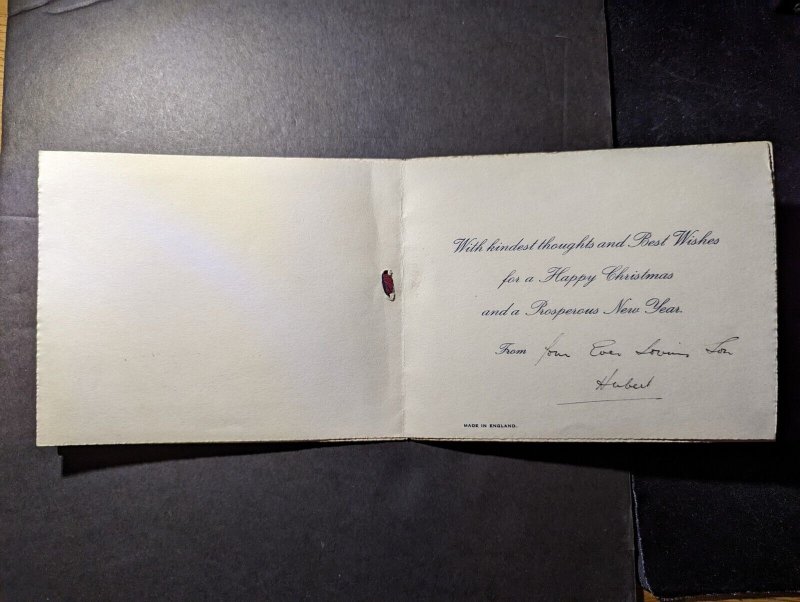 With kindest thoughts and Best Wishes
for a Happy Christmas
and a Prosperous New Year.
From Your Ever Loving Son
Hubert
MADE IN ENGLAND.